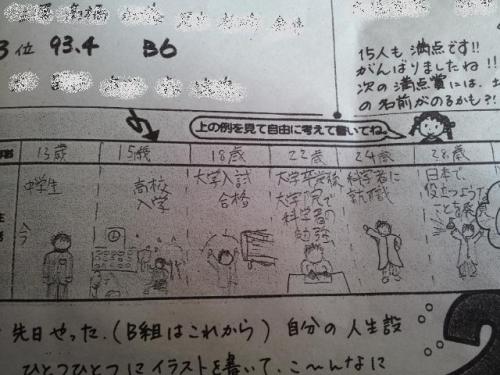 3位 93.4 B6
15人も満点です!!
がんばりましたね!!
次の満点賞には、
の名前がのるかも?!
上の例を見て自由に考えて書いてね。
13歳 15歳 18歳 22歳 24歳 28歳
中学生
高校
入学
大学入試
合格
大学卒業後
大学院で
科学者の
勉強
科学者に
就職
日本で、
役立つような
ことを発
今
先日やった。(B組はこれから) 自分の人生設
ひとつひとつにイラストを書いて、こ〜んなに